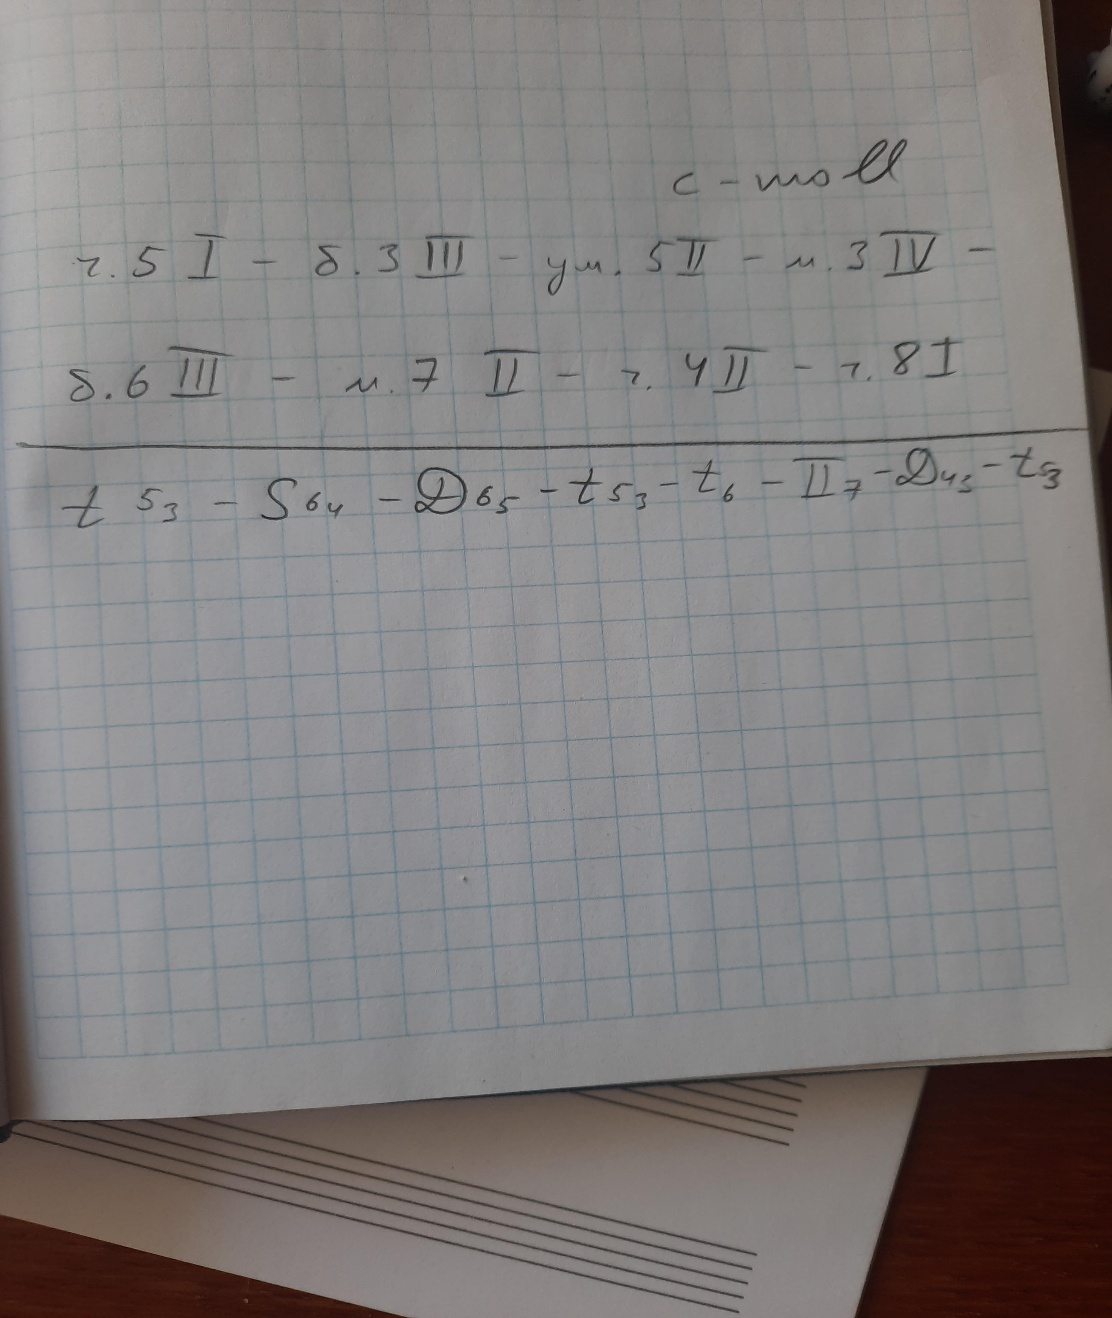 c-moll
ч.5 I - б.3 III - ум.5 II - м.3 IV -
б.6 III - м.7 II - ч.4 II - ч.8 I
t 53 - S64 - D65 - t53 - t6 - II7 - D43 - t53